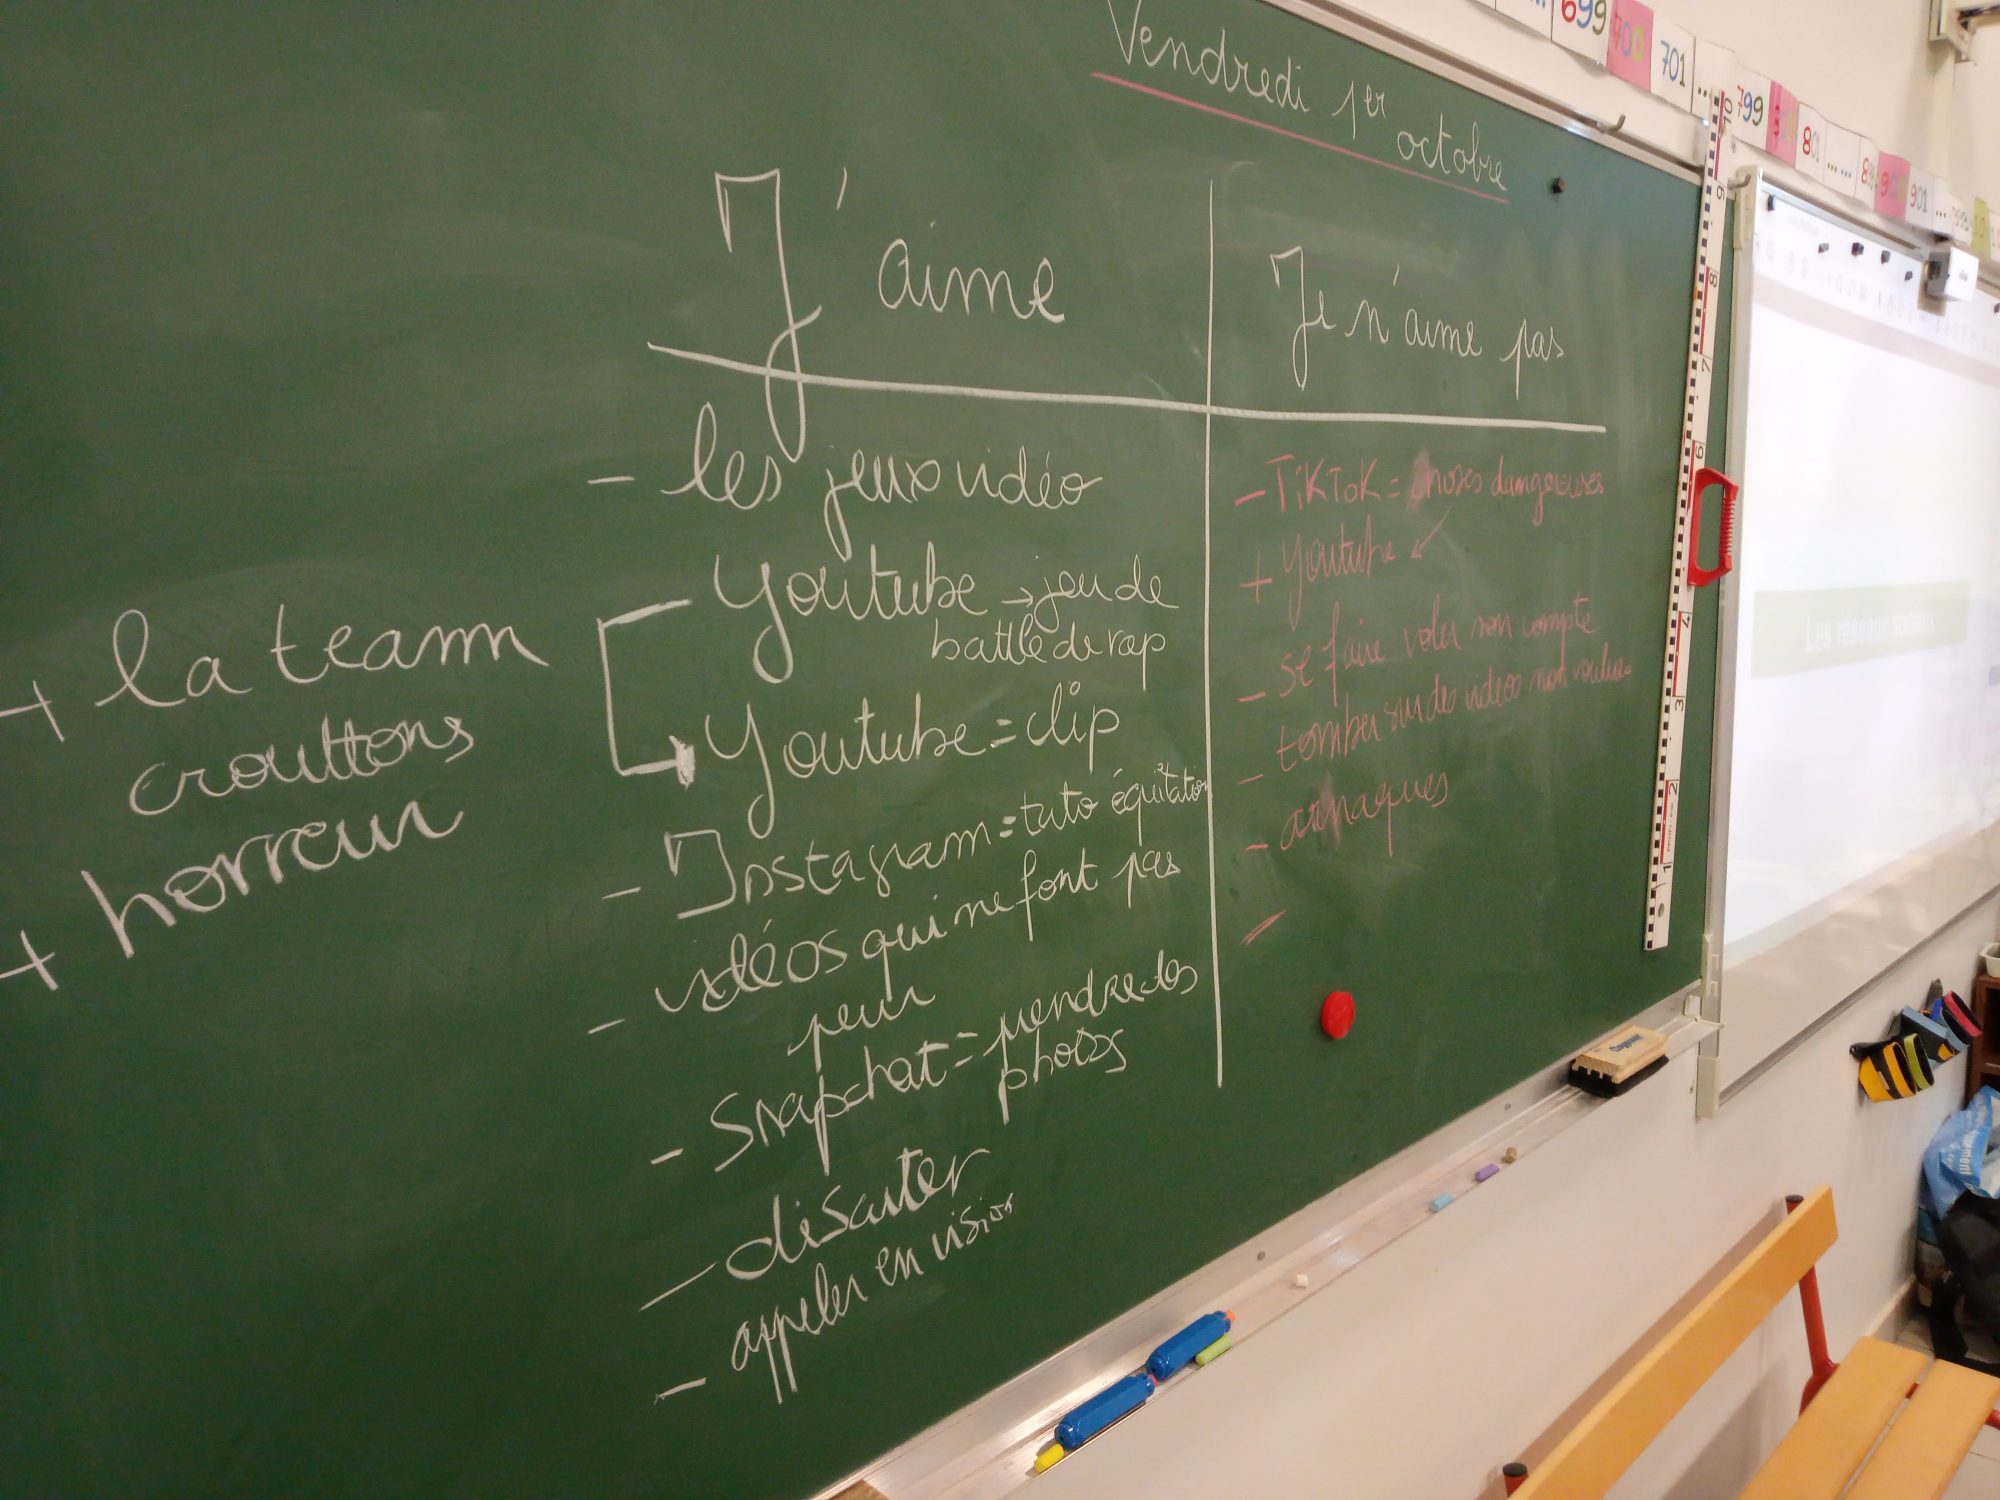 Vendredi 1er octobre
J'aime
Je n'aime pas
- les jeux vidéo
Youtube → jeu de
battle de rap
Youtube = clip
- Instagram = tuto équitation
- vidéos qui ne font pas
peur
- Snapchat = prendre des
photos
- discuter
- appeler en vision
+ la team
crouttons
+ horreur
- TiKToK = choses dangereuses
+ Youtube
- se faire voler son compte
- tomber sur des vidéos non voulues
- arnaques
-
699 700 701 ... 799 801 ... 901 ...
10
9
8
7
6
4
3
2
1
Les réseaux sociaux